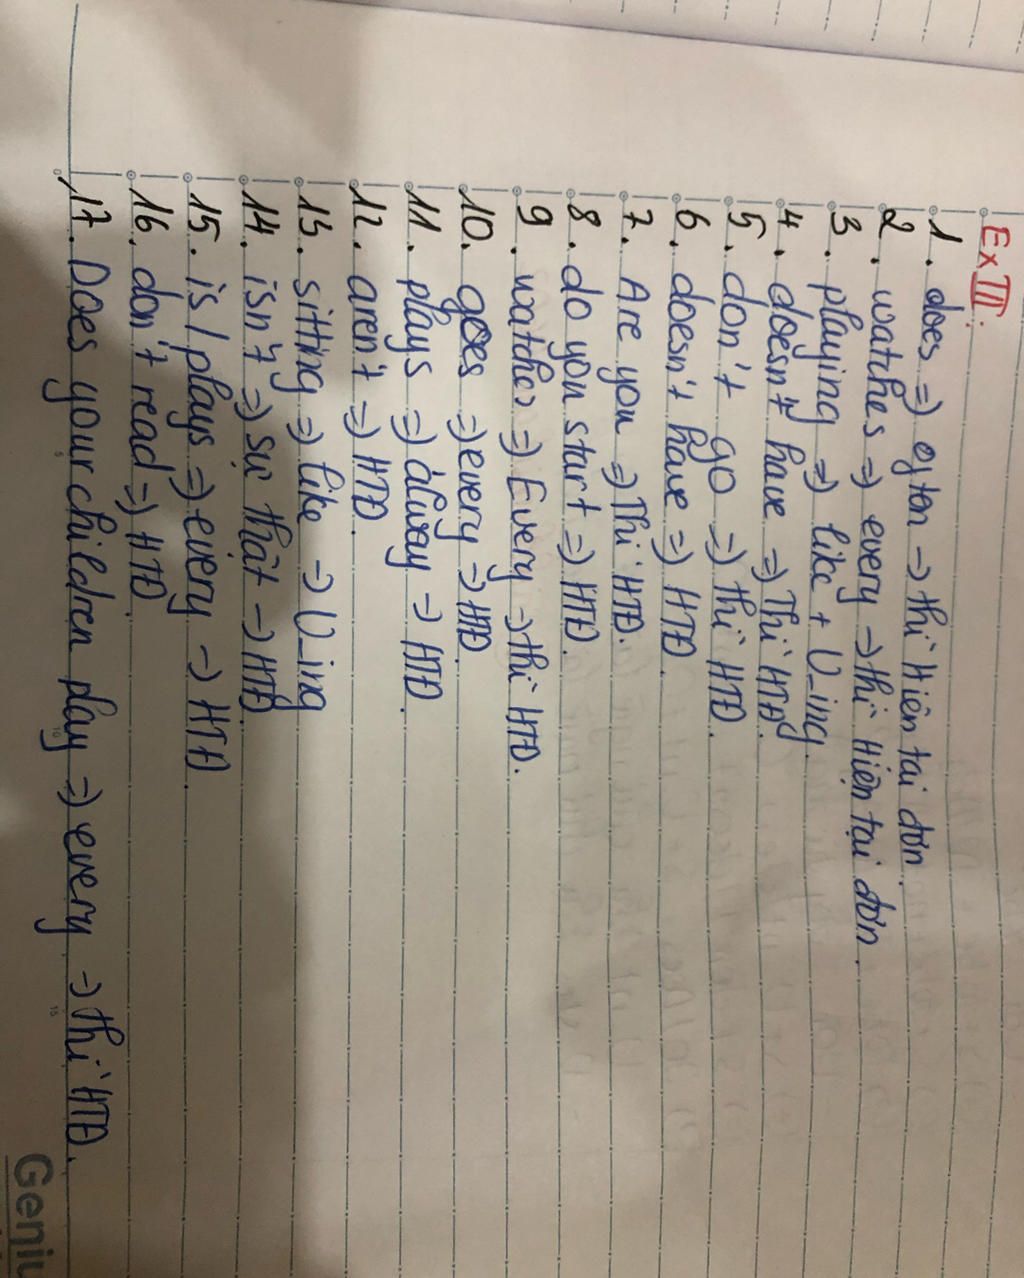 Ex III:
1. does => often -> thì Hiện tại đơn.
2. watches => every -> thì Hiện tại đơn.
3. playing => like + V_ing.
4. doesn't have => Thì HTĐ.
5. don't go => thì HTĐ.
6. doesn't have => HTĐ.
7. Are you => Thì HTĐ.
8. do you start => HTĐ.
9. watches => Every -> thì HTĐ.
10. goes => every -> HTĐ.
11. plays => alway -> HTĐ.
12. aren't => HTĐ.
13. sitting => like -> V_ing
14. isn't => sự thật -> HTĐ.
15. is / plays => every -> HTĐ.
16. don't read => HTĐ.
17. Does your children play => every -> thì HTĐ.
Geniu